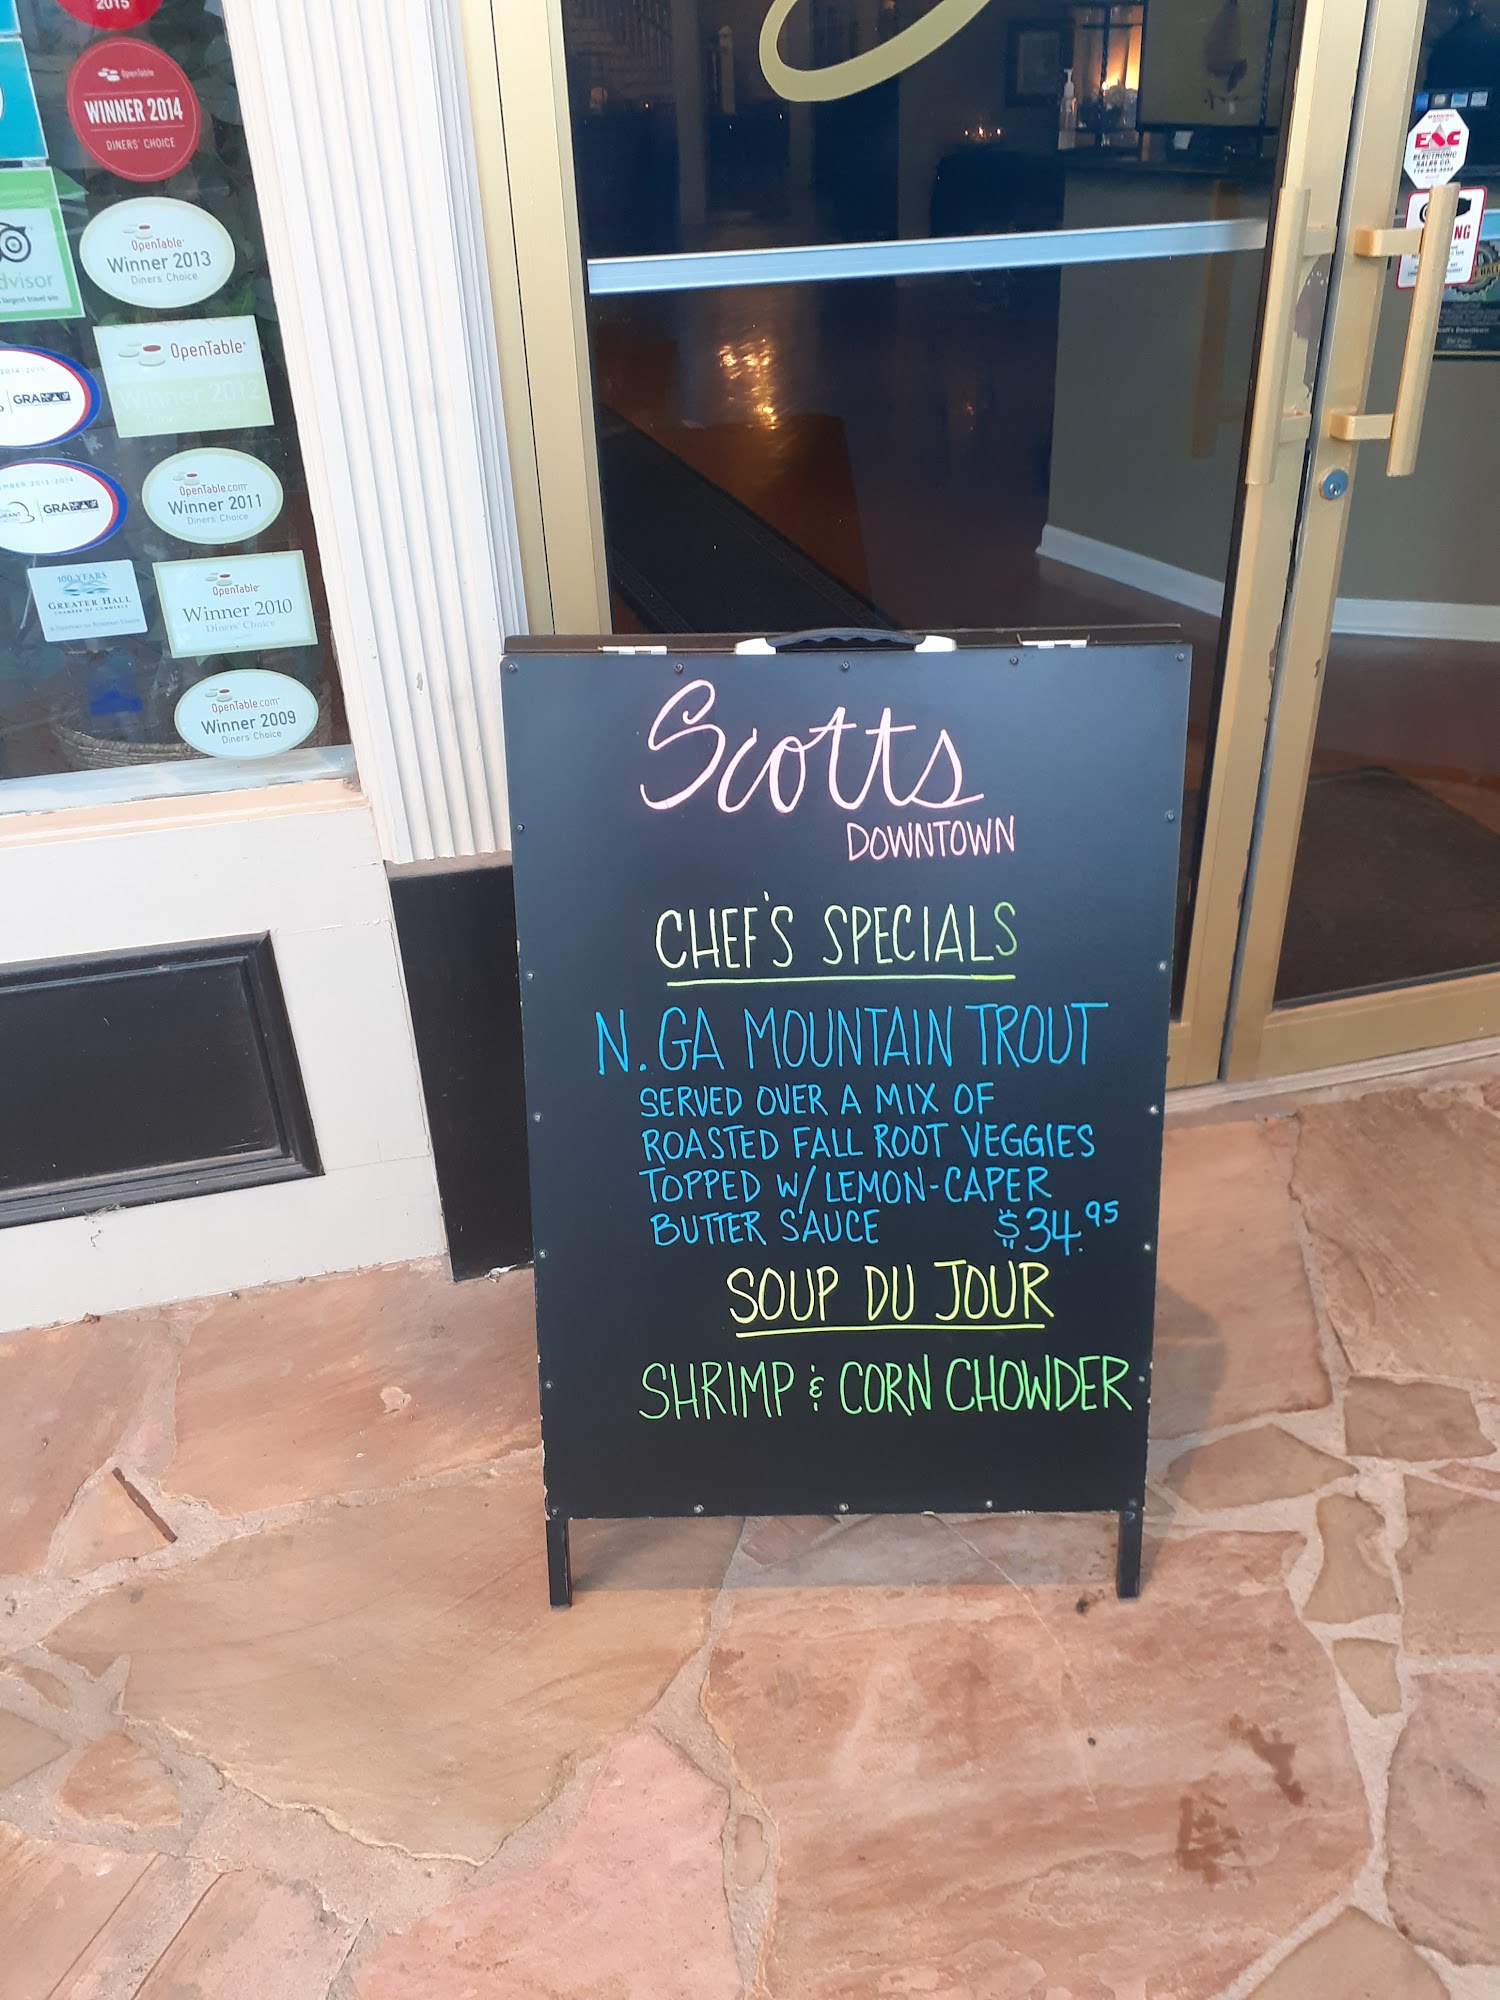 2015
OpenTable
WINNER 2014
DINERS' CHOICE
OpenTable
Winner 2013
Diners' Choice
dvisor
largest travel site
OpenTable
Winner 2012
2014 2015
GRA
OpenTable.com
Winner 2011
Diners' Choice
MBER 2013-2014
GRA
OpenTable
Winner 2010
Diners' Choice
100 YEARS
GREATER HALL
CHAMBER OF COMMERCE
OpenTable.com
Winner 2009
Diners' Choice
ESC
ELECTRONIC
SALES CO.
NG
Scotts
DOWNTOWN
CHEF'S SPECIALS
N. GA MOUNTAIN TROUT
SERVED OVER A MIX OF
ROASTED FALL ROOT VEGGIES
TOPPED W/ LEMON-CAPER
BUTTER SAUCE $34.95
SOUP DU JOUR
SHRIMP & CORN CHOWDER